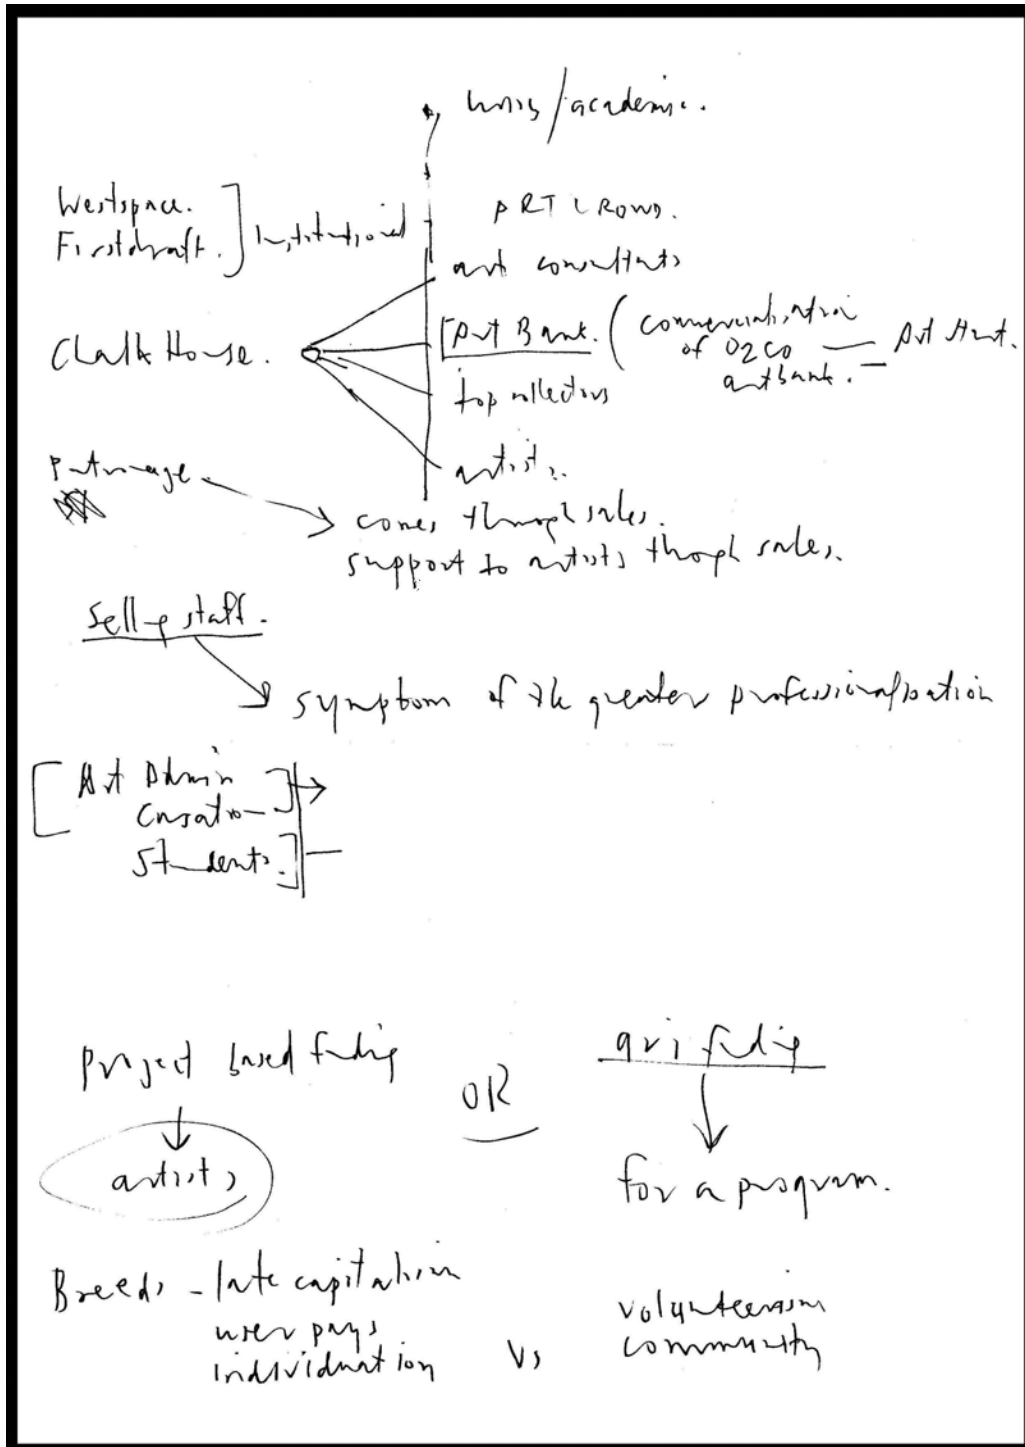 unis/academic.
Westspace.
Firstdraft.
Institutionalised
ART CROWD.
art consultants
Chalk House.
Art Bank. (commercialisation
of
artbank. — Art Hunt.
top collectors
artists.
Patronage
comes through sales.
support to artists though sales.
Selling staff.
symptom of the greater professionalisation
Art Admin
Curation
Students.
project based funding
OR
ari funding
artists
for a program.
Breeds - late capitalism
user pays
individuation
vs
volunteerism
community